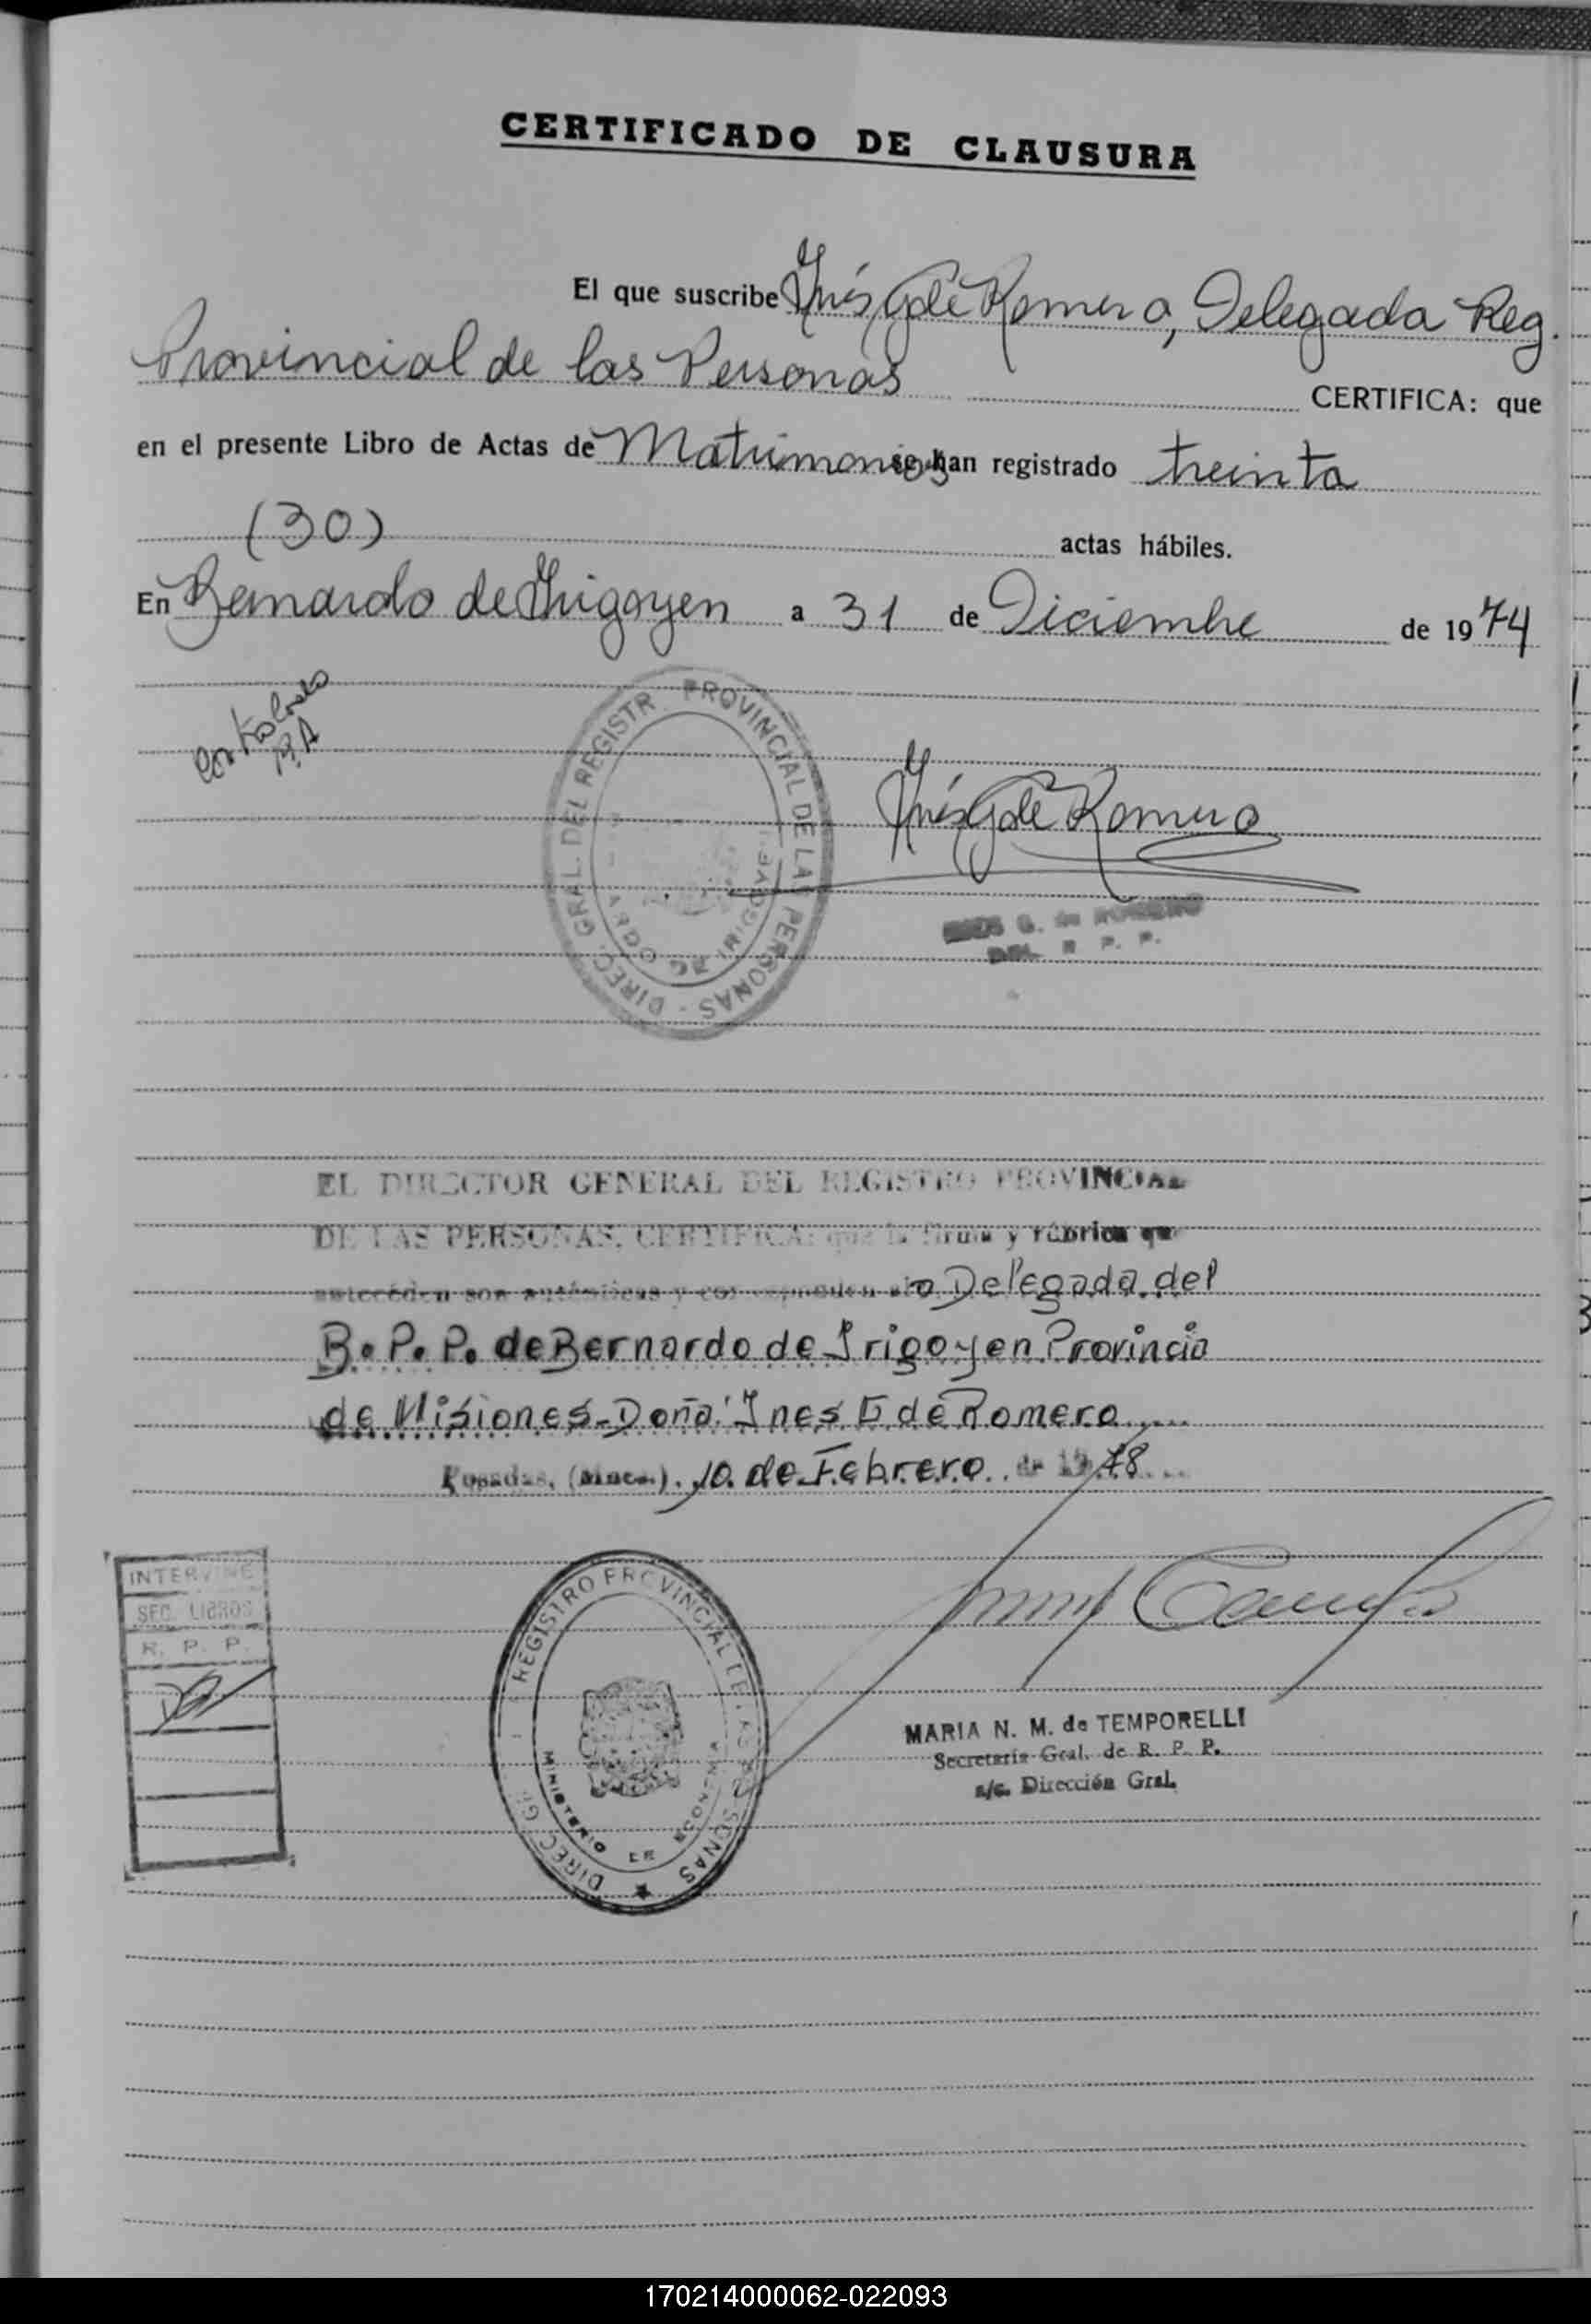 CERTIFICADO DE CLAUSURA
El que suscribe Inés G de Romero, Delegada Reg.
Provincial de las Personas CERTIFICA: que
en el presente Libro de Actas de Matrimonios se han registrado treinta
(30) actas hábiles.
En Bernardo de Irigoyen a 31 de Diciembre de 1974
DIREC. GRAL. DEL REGISTR. PROVINCIAL DE LAS PERSONAS -
DE IRIGOYE
Inés G de Romero
INES G. de ROMERO
DEL. R. P. P.
EL DIRECTOR GENERAL DEL REGISTRO PROVINCIAL
DE LAS PERSONAS, CERTIFICA: que la firma y rúbrica que
anteceden son auténticas y corresponden a la Delegada del
R. P. P. de Bernardo de Irigoyen Provincia
de Misiones-Doña Ines G de Romero
Posadas, (Mnes.). 10 de Febrero de 1978
INTERVINE
SEC. LIBROS
R. P. P.
DIREC. GE REGISTRO PROVINCIAL DE LAS PERSONAS
MINISTERIO DE ECONOMIA
MARIA N. M. de TEMPORELLI
Secretaria Gral. de R. P. P.
a/c. Dirección Gral.
170214000062-022093